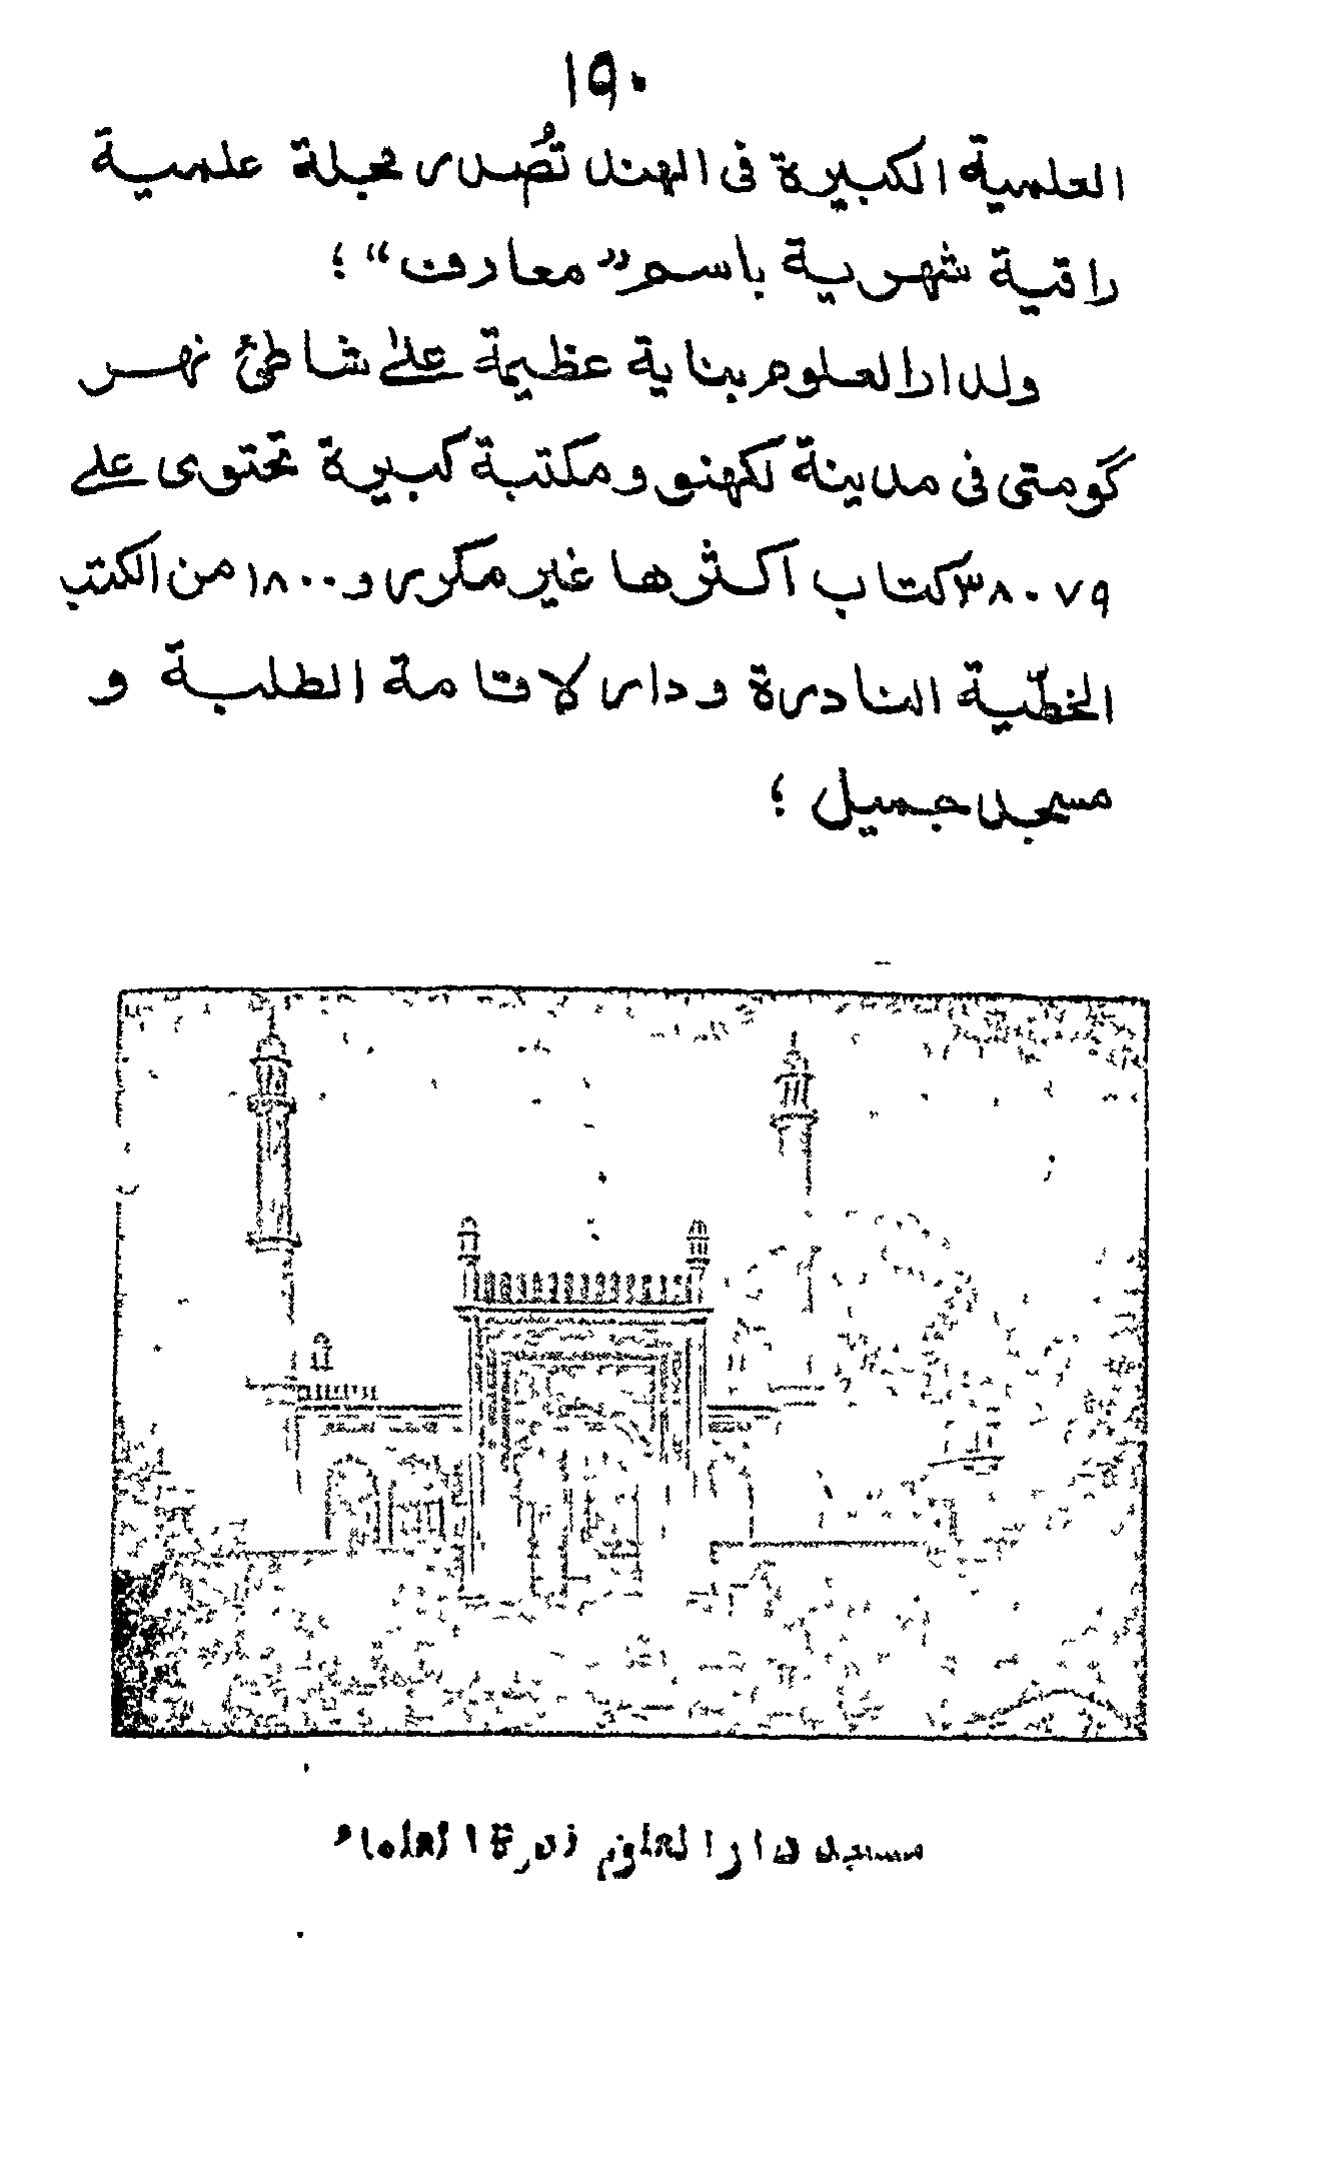 ١٩٠
العلمية الكبيرة فى الهند تُصدر مجلة علمية
راقية شهرية باسم ”معارف“ ؛
ولدار العلوم بناية عظيمة علىٰ شاطئ نهر
گومتى فى مدينة لكهنو ومكتبة كبيرة تحتوى على
٣٨٠٧٩ كتاب اكثرها غير مكرر و ١٨٠٠ من الكتب
الخطّية النادرة ودار لاقامة الطلبة و
مسجد جميل ؛
مسجد دار العلوم ندوة العلماء